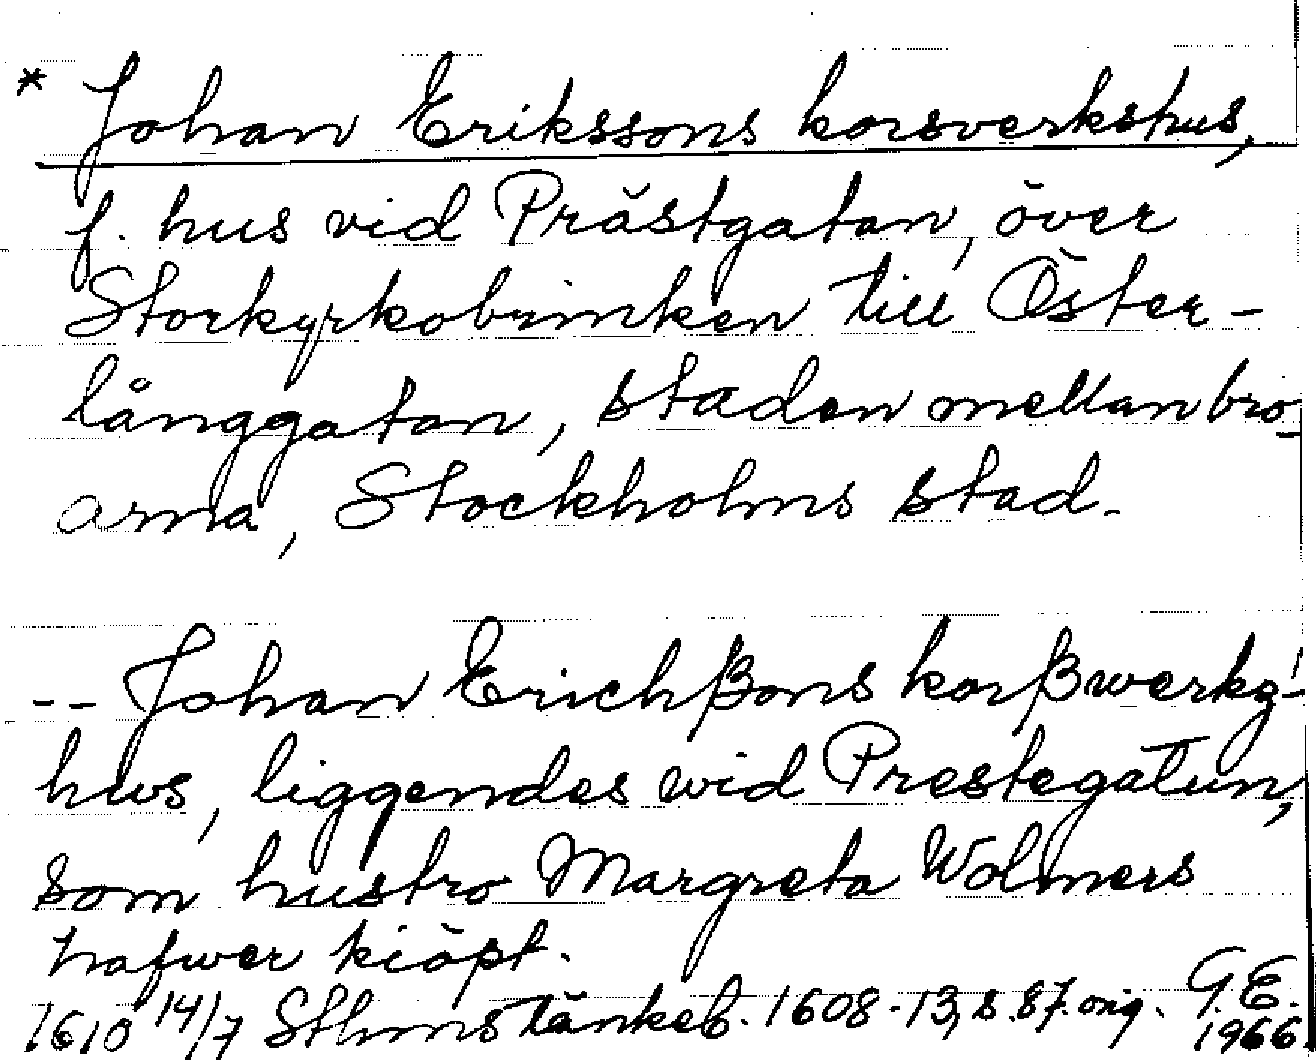 * Johan Erikssons korsverkshus,
f. hus vid Prästgatan, över
Storkyrkobrinken till Öster-
långgatan, staden mellan bro-
arna, Stockholms stad.
-- Johan Erichßons korßwerkz-
hws, liggendes wid Prestegatun,
som hustro Margreta Wolmers
hafwer kiöpt.
1610 14/7 Sthms tänkeb. 1608-13, s. 87. orig. G.E.
1966